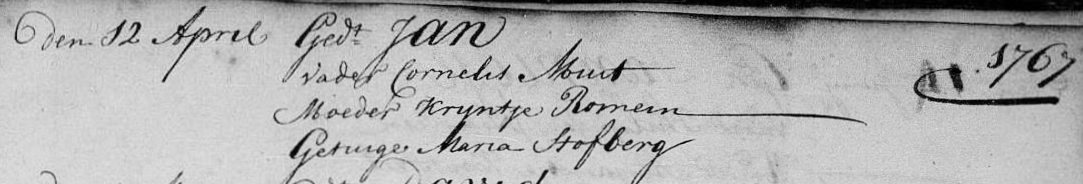 den 12 April Gedt JAN 1767
vader Cornelis Muut
Moeder Kryntje Romein
Getuige Maria Stofberg